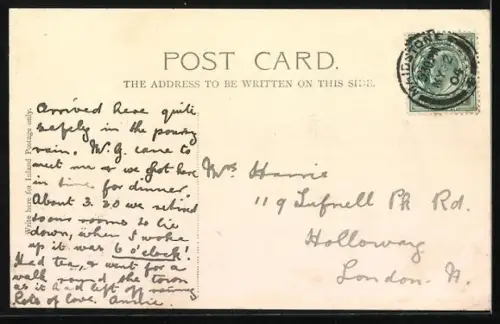 POST CARD.
THE ADDRESS TO BE WRITTEN ON THIS SIDE.
Write here for Inland Postage only.
MAIDSTONE
MY 12
04
Arrived here quite
safely in the pouring
rain. Mr. G. came to
meet me & we got here
in time for dinner.
About 3.30 we retired
to our rooms to lie
down, when I woke
up it was 6 o'clock!
Had tea, & went for a
walk round the town
as it had left off raining
Lots of love. Annie.
Mrs Harrie
119 Tufnell Pk Rd.
Holloway
London. N.